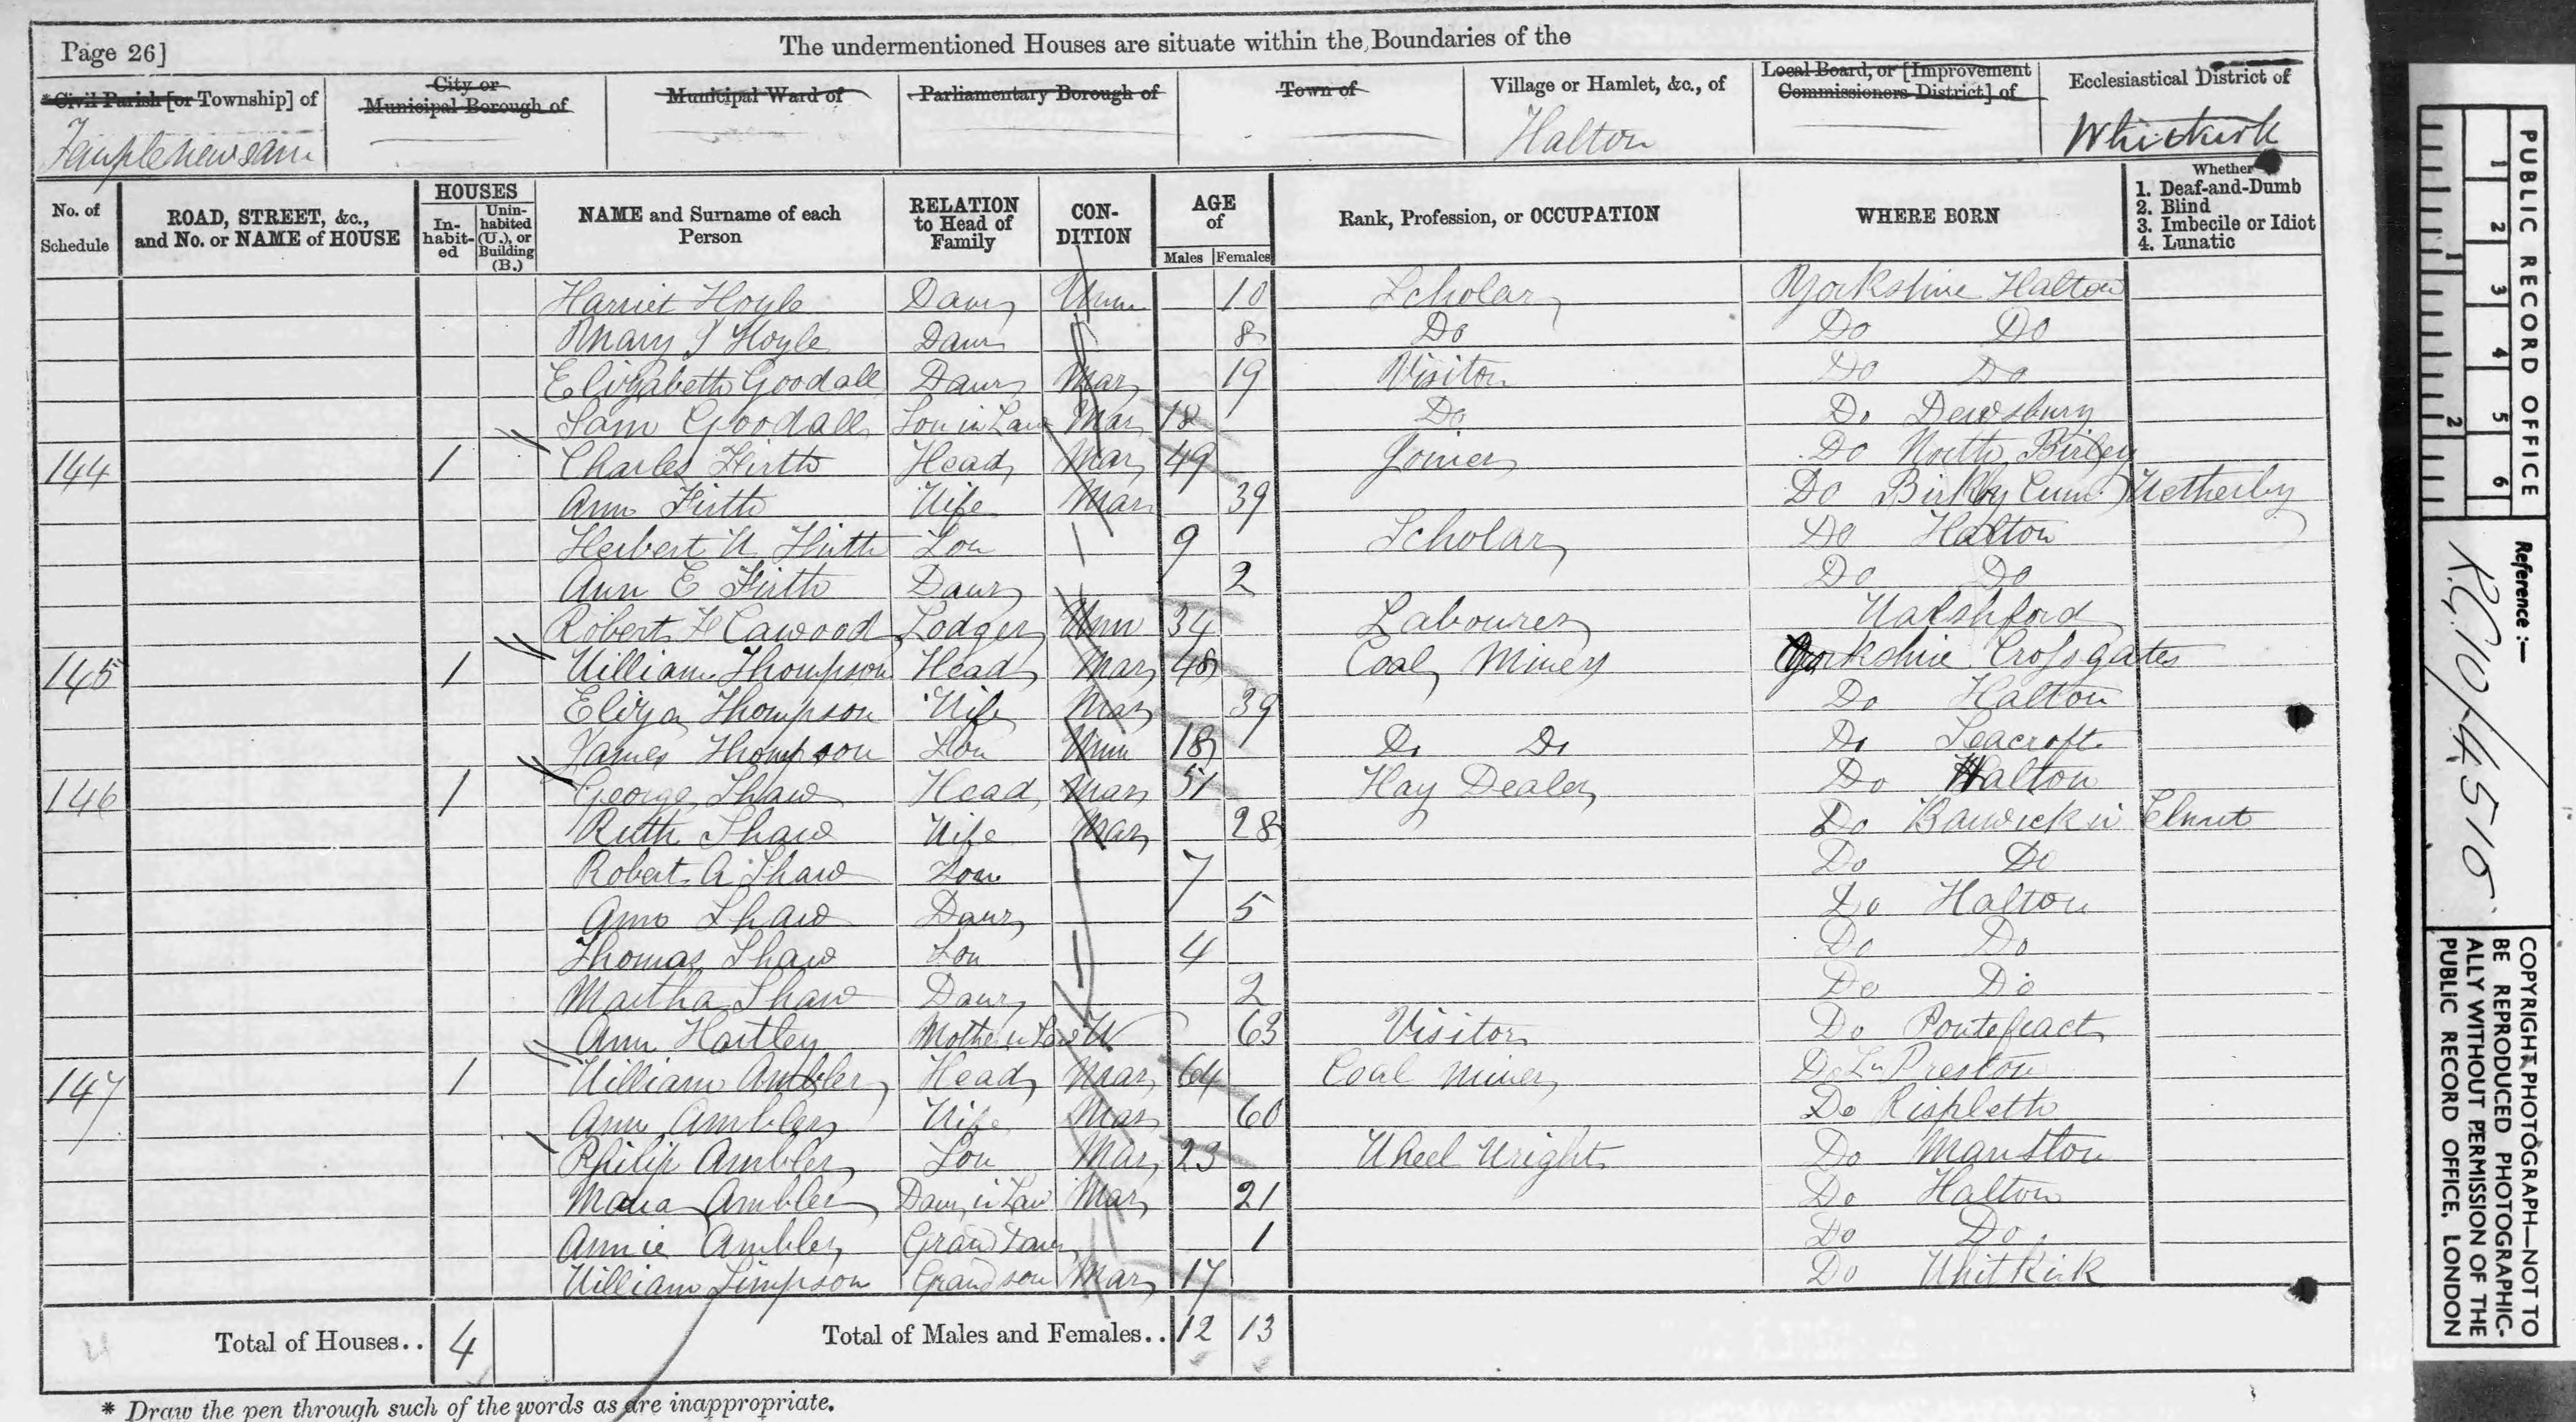 Page 26]
The undermentioned Houses are situate within the Boundaries of the
* Civil Parish [or Township] of
City or Municipal Borough of
Municipal Ward of
Parliamentary Borough of
Town of
Village or Hamlet, &c., of
Local Board, or [Improvement Commissioners District] of
Ecclesiastical District of
Templenewsam
Halton
Whitkirk
No. of Schedule
ROAD, STREET, &c., and No. or NAME of HOUSE
HOUSES
In-habit-ed
Unin-habited (U.), or Building (B.)
NAME and Surname of each Person
RELATION to Head of Family
CON-DITION
AGE of
Males Females
Rank, Profession, or OCCUPATION
WHERE BORN
Whether
1. Deaf-and-Dumb
2. Blind
3. Imbecile or Idiot
4. Lunatic
Harriet Hoyle Daur Unm 10 Scholar Yorkshire Halton
Mary Hoyle Daur 8 Do Do Do
Elizabeth Goodall Daur Mar 19 Visitor Do Do
Sam Goodall Son in Law Mar 18 Do Do Dewsbury
144 1 Charles Firth Head Mar 49 Joiner Do North Birley
Ann Firth Wife Mar 39 Do Wetherby
Herbert W Firth Son 9 Scholar Do Halton
Ann E Firth Daur 2 Do Do
Robert F Cawood Lodger Unm 34 Labourer Walshford
145 1 William Thompson Head Mar 48 Coal Miner Yorkshire Crossgates
Eliza Thompson Wife Mar 39 Do Halton
James Thompson Son Unm 18 Do Do Do Seacroft
146 1 George Shaw Head Mar 51 Hay Dealer Do Halton
Ruth Shaw Wife Mar 28 Do Barwick in Elmet
Robert A Shaw Son 7 Do Do
Ann Shaw Daur 5 Do Halton
Thomas Shaw Son 4 Do Do
Martha Shaw Daur 2 Do Do
Ann Hartley Mother in Law W 63 Visitor Do Pontefract
147 1 William Ambler Head Mar 64 Coal Miner Do Preston
Ann Ambler Wife Mar 60 Do
Philip Ambler Son Mar 23 Wheel Wright Do Manston
Maria Ambler Daur in Law Mar 21 Do Halton
Annie Ambler Grand Daur 1 Do Do
William Simpson Grandson Mar 17 Do Whitkirk
Total of Houses.. 4
Total of Males and Females.. 12 13
* Draw the pen through such of the words as are inappropriate.
PUBLIC RECORD OFFICE
1 2 3 4 5 6
1 2
Reference :—
R.G. 10/4515
COPYRIGHT PHOTOGRAPH—NOT TO BE REPRODUCED PHOTOGRAPHIC-ALLY WITHOUT PERMISSION OF THE PUBLIC RECORD OFFICE, LONDON